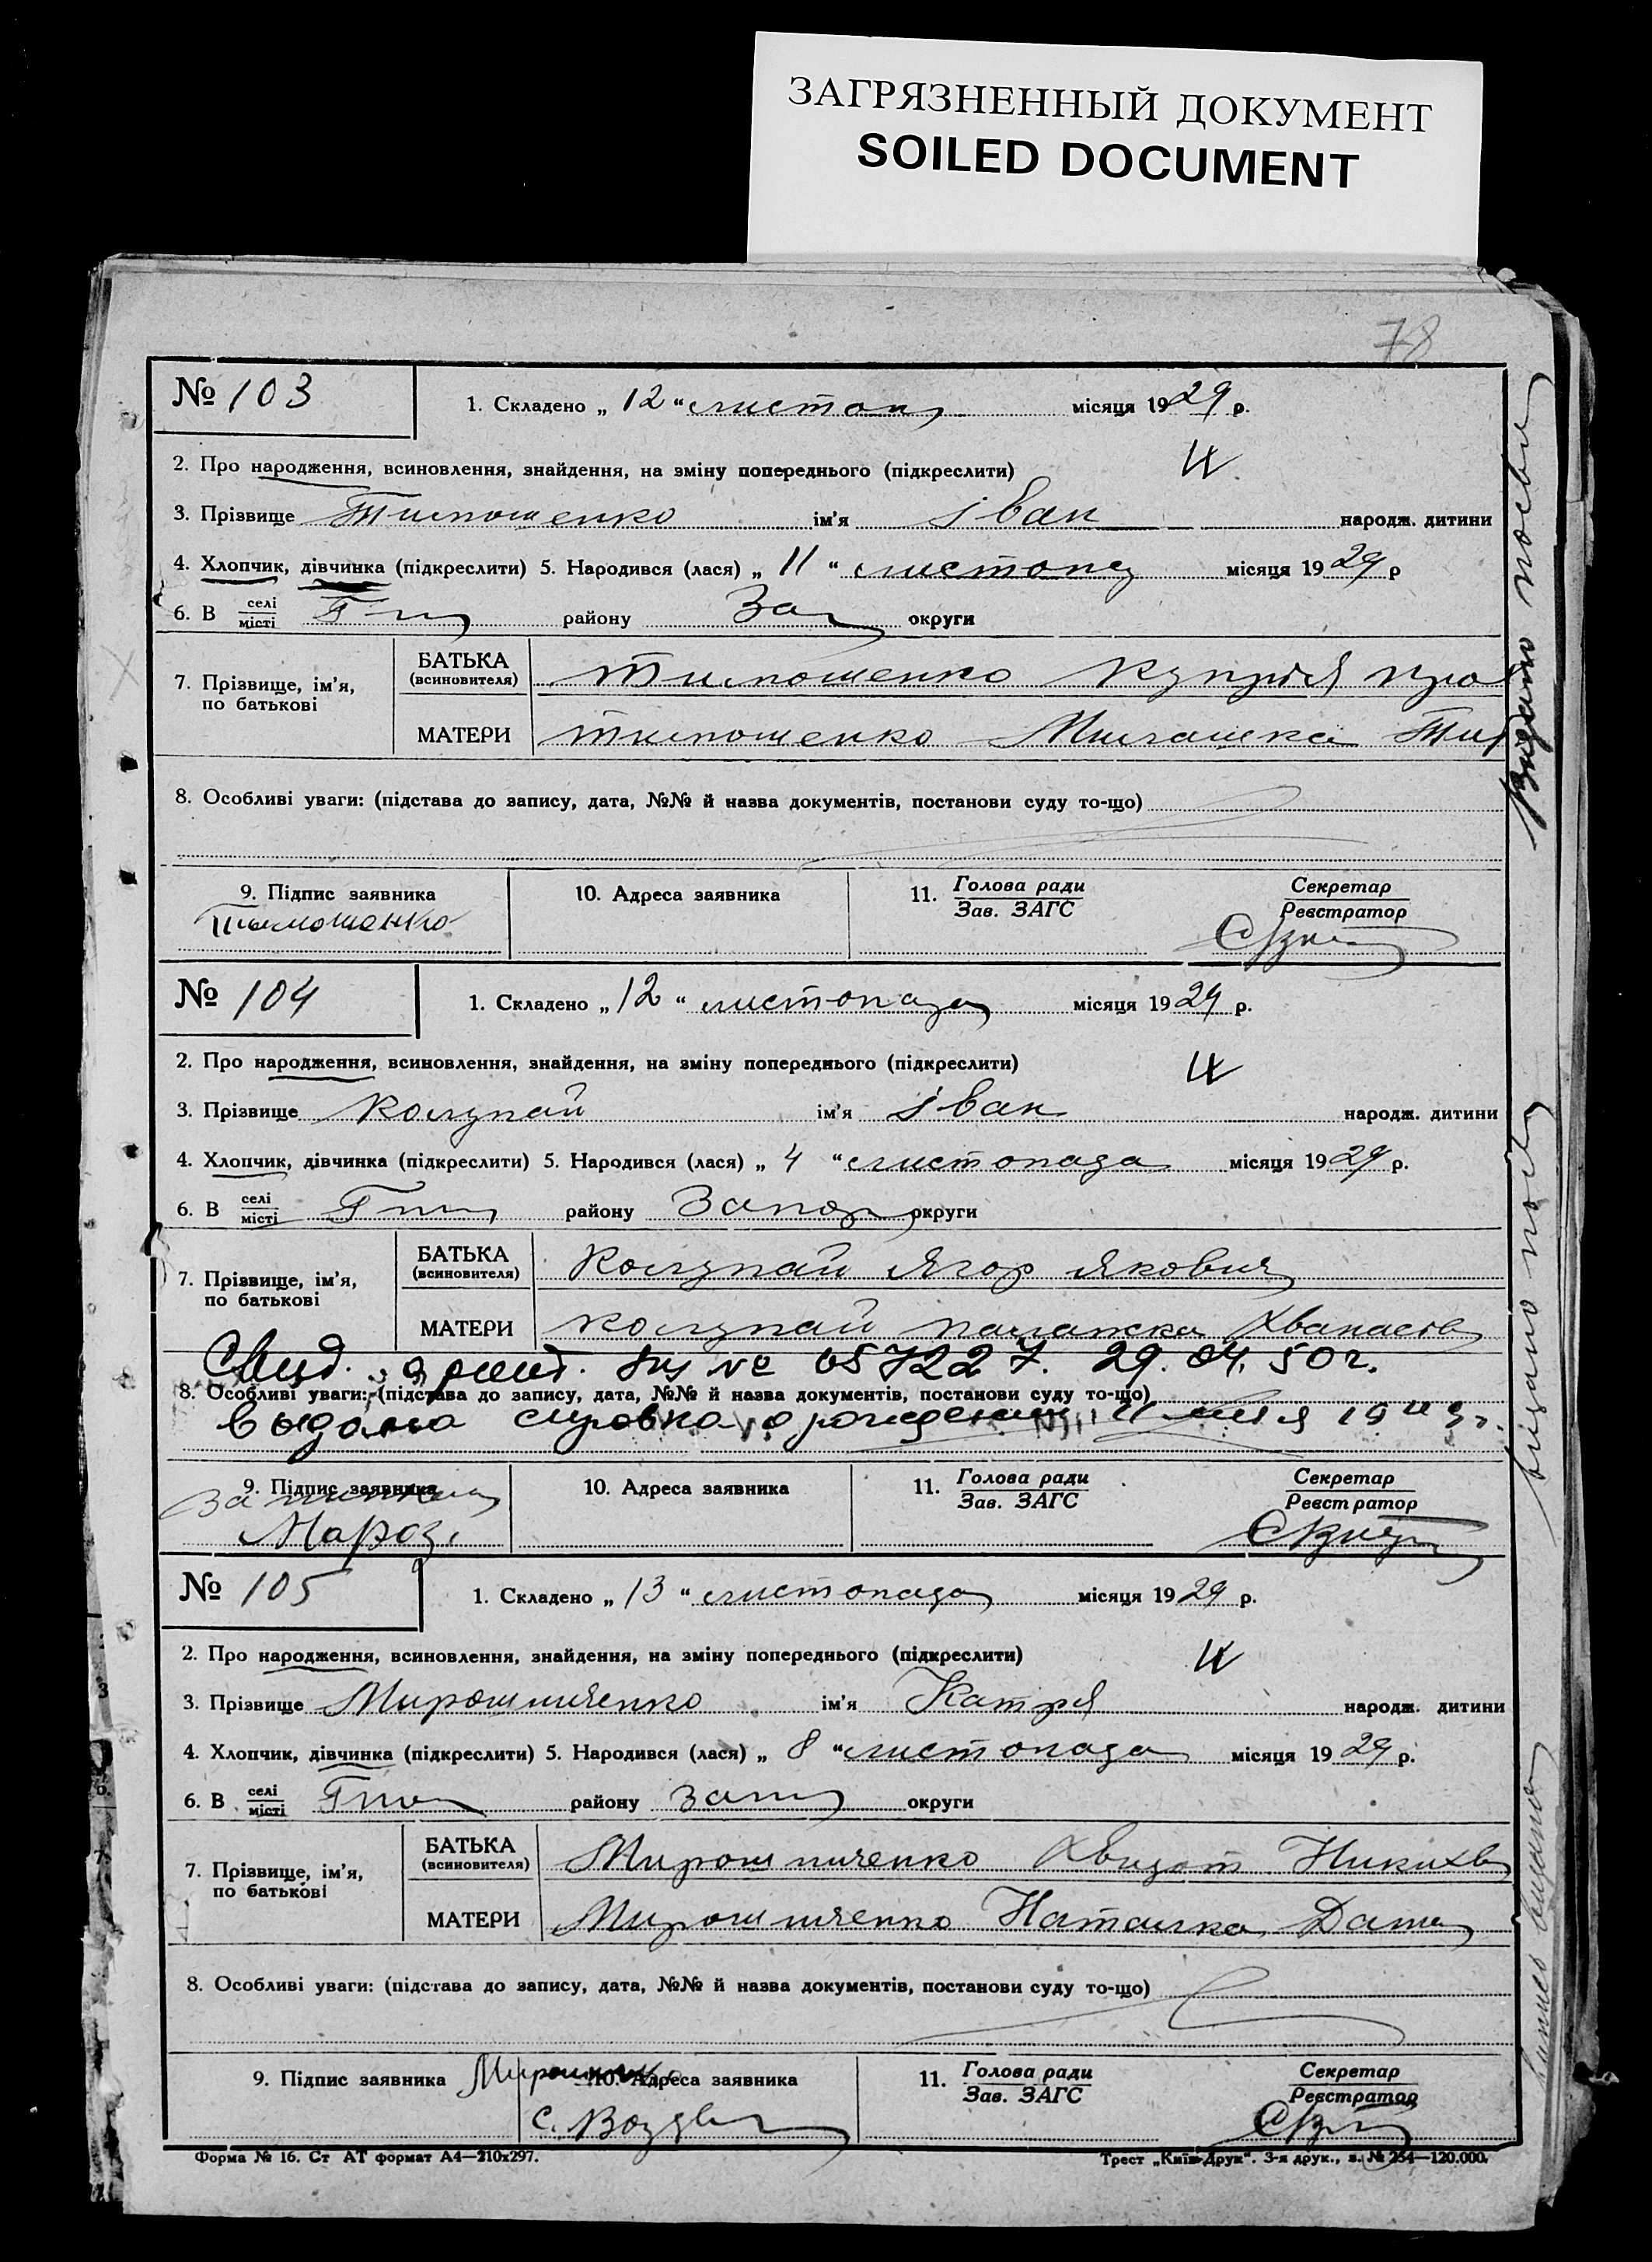 ЗАГРЯЗНЕННЫЙ ДОКУМЕНТ
SOILED DOCUMENT
78
№ 103
1. Складено „ 12 “ листоп місяця 1929 р.
2. Про народження, всиновлення, знайдення, на зміну попереднього (підкреслити)
3. Прізвище Тимошенко ім'я Іван народж. дитини
4. Хлопчик, дівчинка (підкреслити) 5. Народився (лася) „ 11 “ листопад місяця 1929 р
6. В селі місті району За округи
7. Прізвище, ім'я, по батькові
БАТЬКА (всиновителя) Тимошенко Купрій
МАТЕРИ Тимошенко
8. Особливі уваги: (підстава до запису, дата, №№ й назва документів, постанови суду то-що)
9. Підпис заявника
10. Адреса заявника
11. Голова ради Зав. ЗАГС
Секретар Реєстратор
Тимошенко
№ 104
1. Складено „ 12 “ листопада місяця 1929 р.
2. Про народження, всиновлення, знайдення, на зміну попереднього (підкреслити)
3. Прізвище Колупай ім'я Іван народж. дитини
4. Хлопчик, дівчинка (підкреслити) 5. Народився (лася) „ 4 “ листопада місяця 1929 р.
6. В селі місті району Запор округи
7. Прізвище, ім'я, по батькові
БАТЬКА (всиновителя) Колупай Ягор Якович
МАТЕРИ Колупай Палажка Хванасів
Свид. № 057227. 29.04.50 г.
8. Особливі уваги: (підстава до запису, дата, №№ й назва документів, постанови суду то-що)
Выдана справка о рождении
9. Підпис заявника
10. Адреса заявника
11. Голова ради Зав. ЗАГС
Секретар Реєстратор
Мороз
№ 105
1. Складено „ 13 “ листопада місяця 1929 р.
2. Про народження, всиновлення, знайдення, на зміну попереднього (підкреслити)
3. Прізвище Мирошниченко ім'я Катря народж. дитини
4. Хлопчик, дівчинка (підкреслити) 5. Народився (лася) „ 8 “ листопада місяця 1929 р.
6. В селі місті району Зап округи
7. Прізвище, ім'я, по батькові
БАТЬКА (всиновителя) Мирошниченко Хведот Никихв
МАТЕРИ Мирошниченко Наталка
8. Особливі уваги: (підстава до запису, дата, №№ й назва документів, постанови суду то-що)
9. Підпис заявника
10. Адреса заявника
11. Голова ради Зав. ЗАГС
Секретар Реєстратор
Форма № 16. Ст АТ формат А4—210х297.
Трест „Київ-Друк“. 3-я друк., з. № 254—120.000.